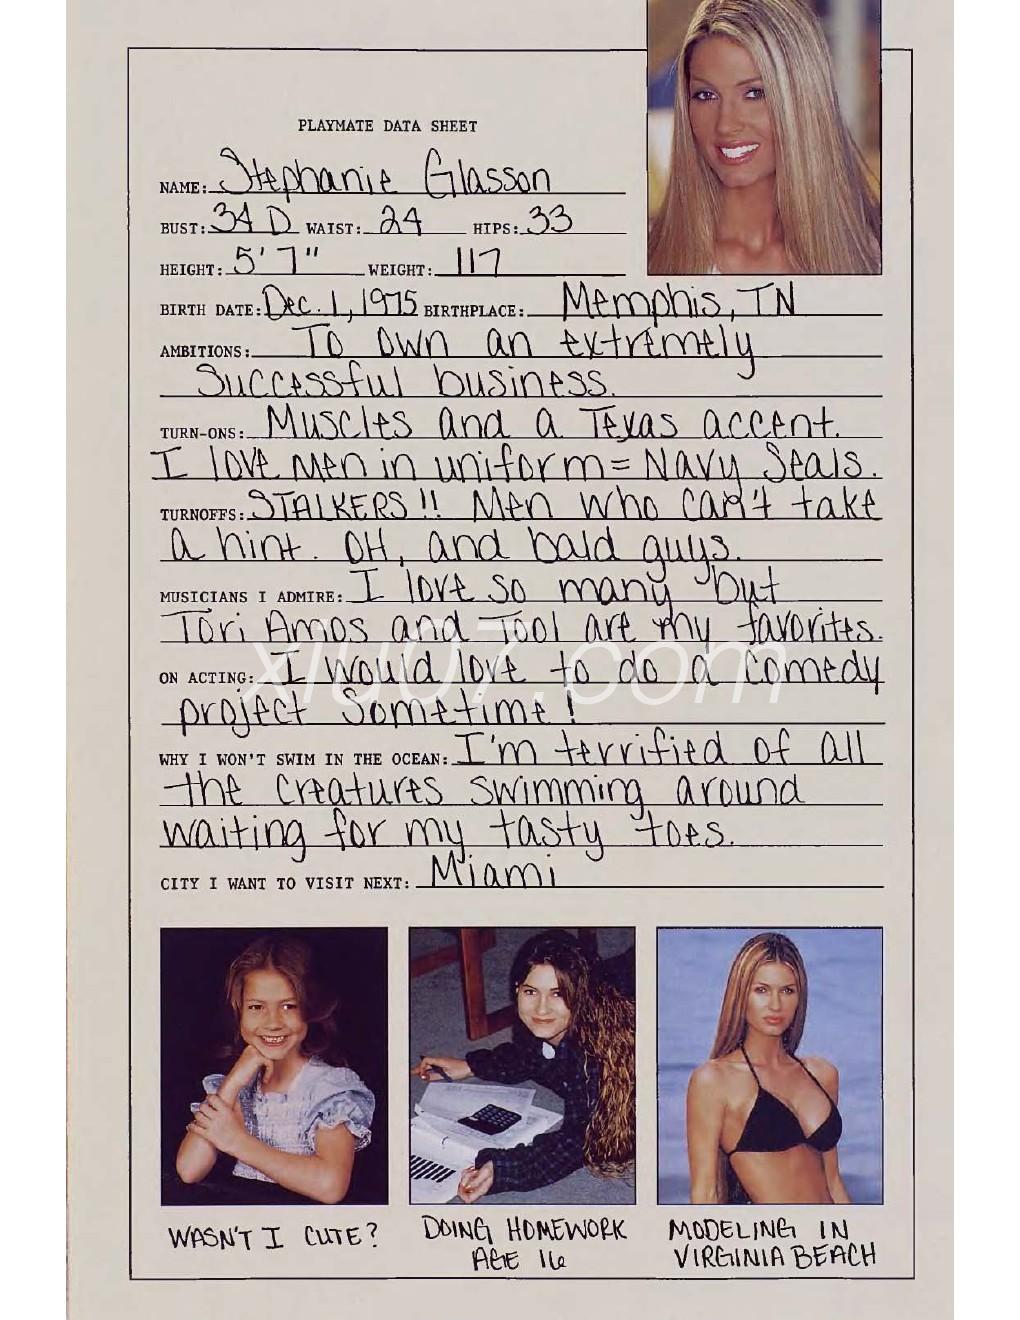 PLAYMATE DATA SHEET
NAME: Stephanie Glasson
BUST: 34 D WAIST: 24 HIPS: 33
HEIGHT: 5' 7" WEIGHT: 117
BIRTH DATE: Dec. 1, 1975 BIRTHPLACE: Memphis, TN
AMBITIONS: To own an extremely
successful business.
TURN-ONS: Muscles and a Texas accent.
I love men in uniform = Navy Seals.
TURNOFFS: STALKERS!! Men who can't take
a hint. OH, and bald guys.
MUSICIANS I ADMIRE: I love so many but
Tori Amos and Tool are my favorites.
xiu07.com
ON ACTING: I would love to do a comedy
project sometime!
WHY I WON'T SWIM IN THE OCEAN: I'm terrified of all
the creatures swimming around
waiting for my tasty toes.
CITY I WANT TO VISIT NEXT: Miami
WASN'T I CUTE?
DOING HOMEWORK
AGE 16
MODELING IN
VIRGINIA BEACH